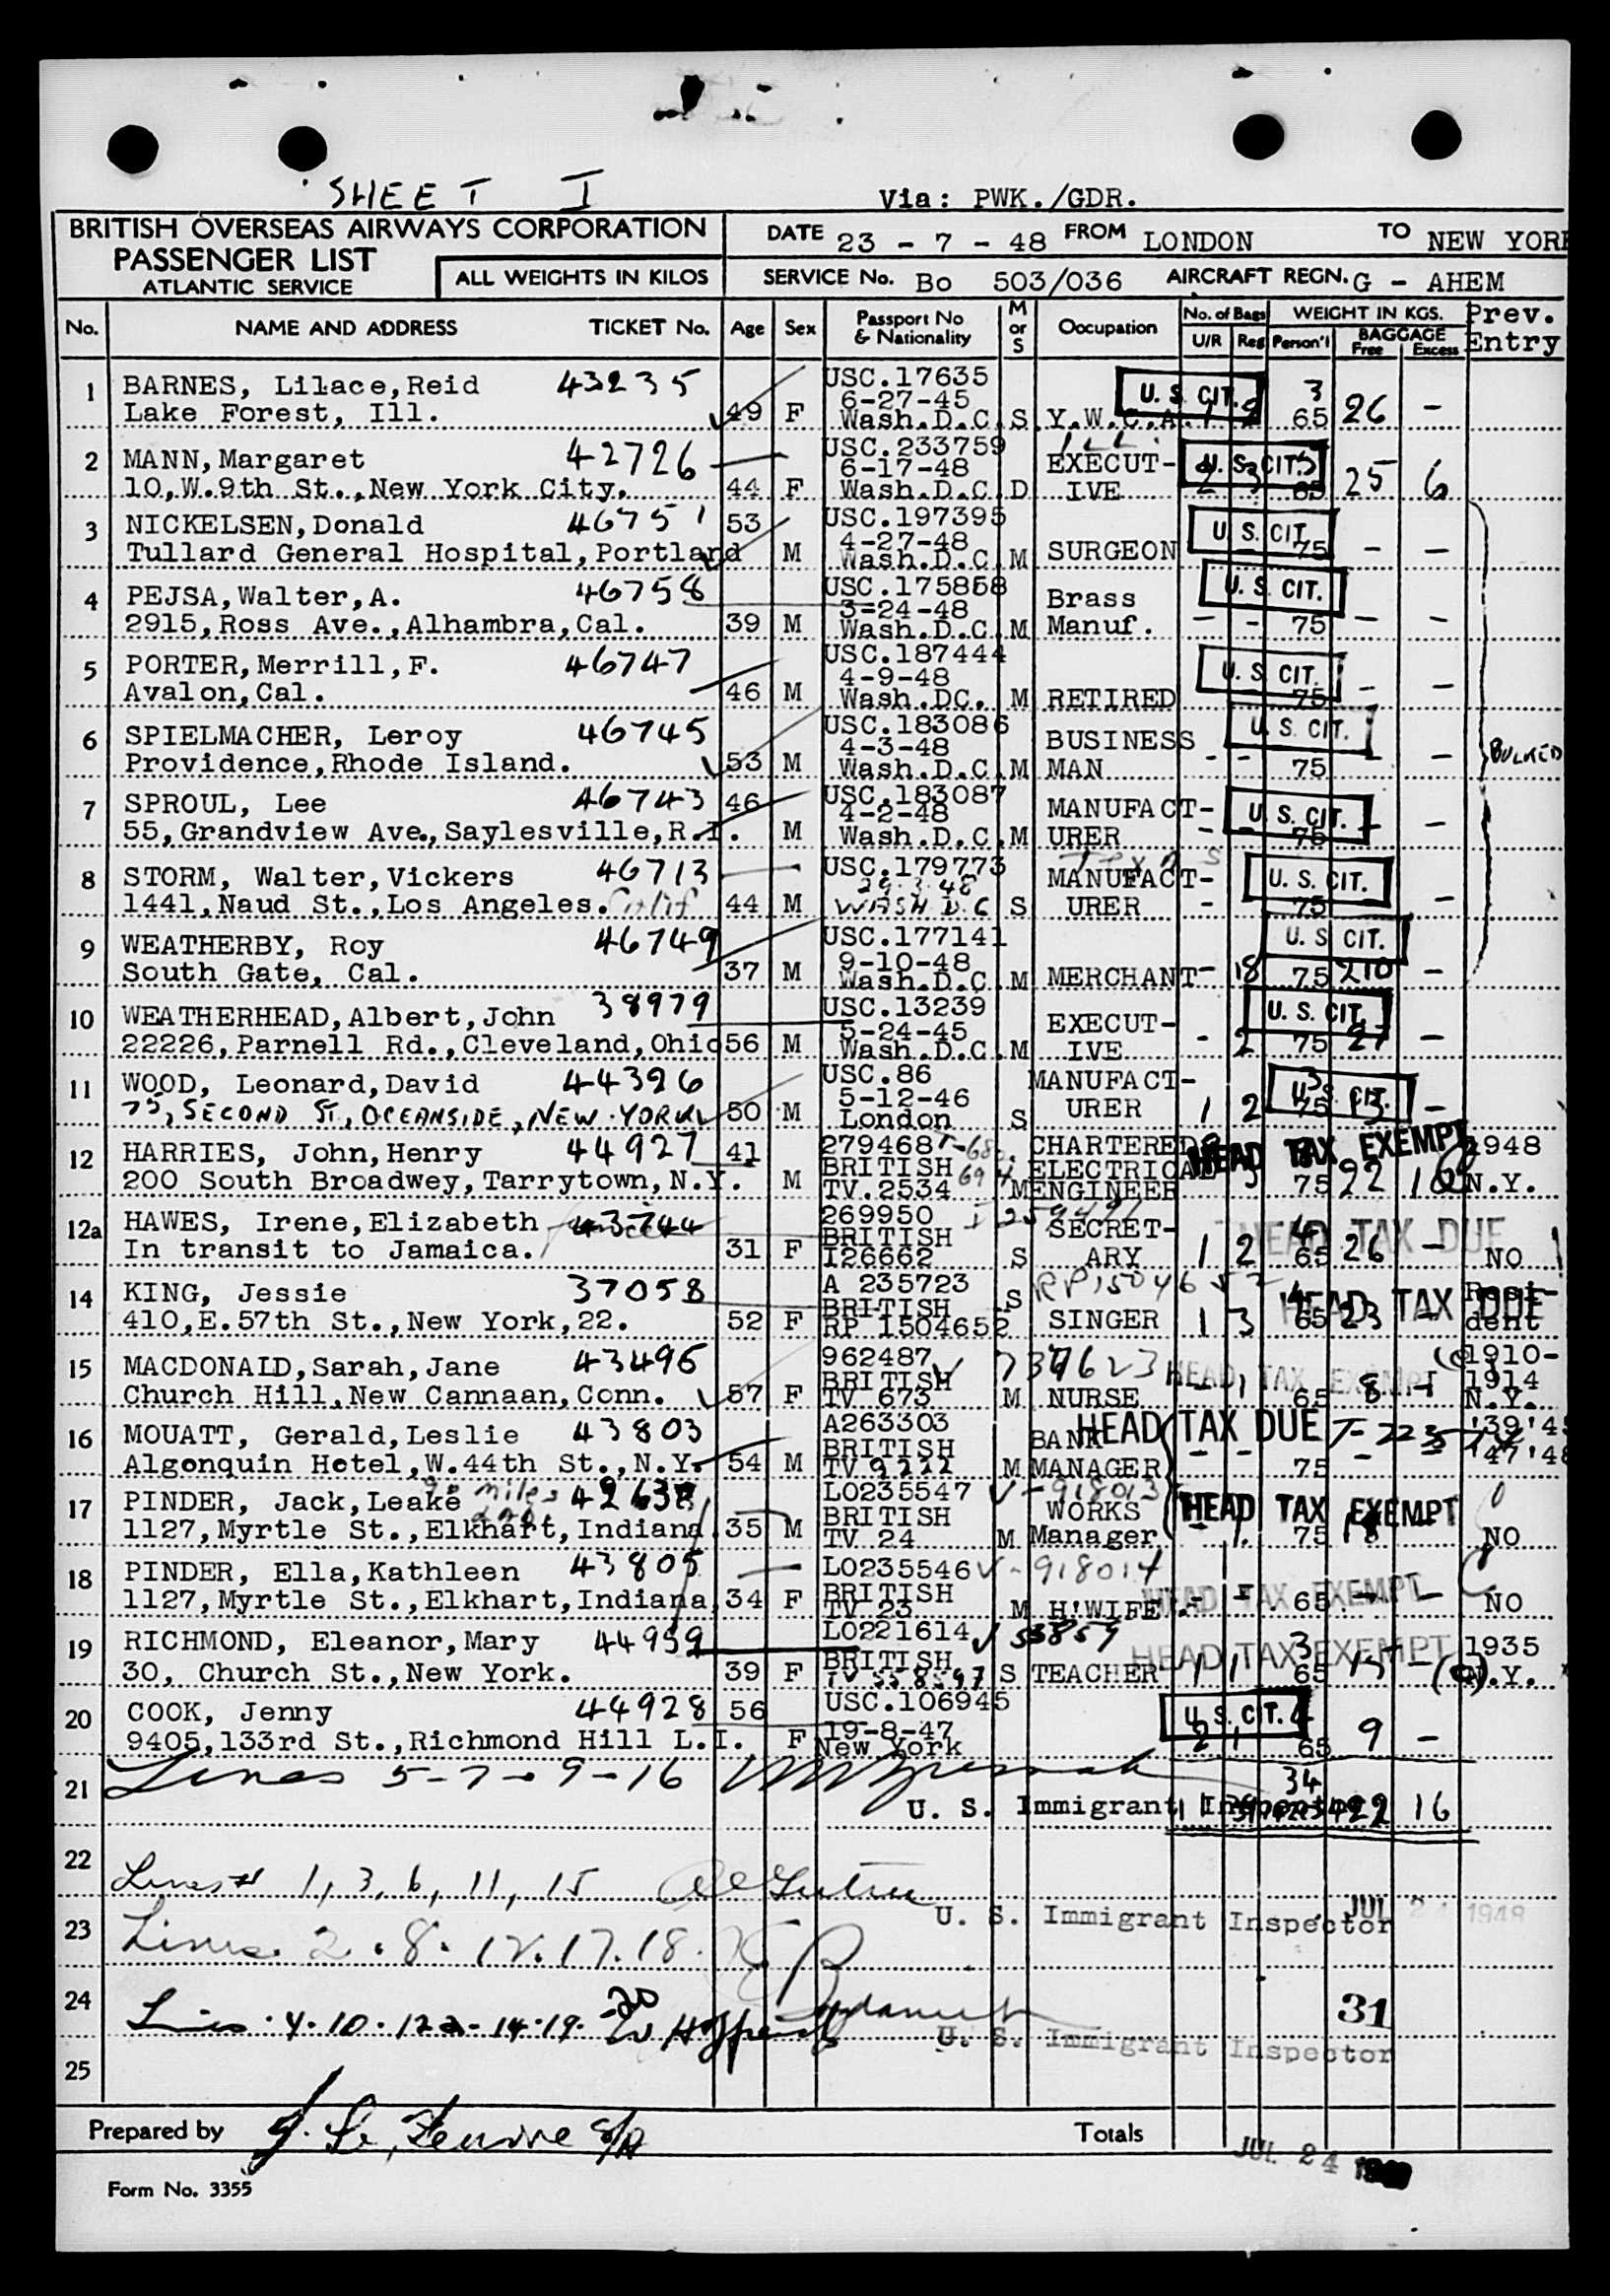 SHEET I
Via: PWK./GDR.
BRITISH OVERSEAS AIRWAYS CORPORATION
PASSENGER LIST
ATLANTIC SERVICE
ALL WEIGHTS IN KILOS
DATE 23 - 7 - 48 FROM LONDON TO NEW YORK
SERVICE No. Bo 503/036 AIRCRAFT REGN. G - AHEM
No. NAME AND ADDRESS TICKET No. Age Sex Passport No & Nationality M or S Occupation No. of Bags U/R Reg WEIGHT IN KGS. Person'l BAGGAGE Free Excess Prev. Entry
1 BARNES, Lilace,Reid 43235 USC.17635 U. S. CIT. 3
6-27-45
Lake Forest, Ill. 49 F Wash.D.C. S Y.W.C.A. 65 26 -
2 MANN,Margaret 42726 USC.233759 U. S. CIT.
6-17-48 EXECUT-
10,W.9th St.,New York City. 44 F Wash.D.C. D IVE 2 3 65 25 6
3 NICKELSEN,Donald 46751 53 USC.197395 U. S. CIT.
4-27-48
Tullard General Hospital,Portland M Wash.D.C. M SURGEON 75 - -
4 PEJSA,Walter,A. 46758 USC.175858 U. S. CIT.
3-24-48 Brass
2915,Ross Ave.,Alhambra,Cal. 39 M Wash.D.C. M Manuf. - - 75 - -
5 PORTER,Merrill,F. 46747 USC.187444 U. S. CIT.
4-9-48
Avalon,Cal. 46 M Wash.DC. M RETIRED 75 - -
6 SPIELMACHER, Leroy 46745 USC.183086 U. S. CIT.
4-3-48 BUSINESS BULKED
Providence,Rhode Island. 53 M Wash.D.C. M MAN - - 75 -
7 SPROUL, Lee 46743 46 USC.183087 U. S. CIT.
4-2-48 MANUFACT-
55,Grandview Ave.,Saylesville,R.I. M Wash.D.C. M URER - - 75 - -
8 STORM, Walter,Vickers 46713 USC.179773 Texas U. S. CIT.
29.3.48 MANUFACT-
1441,Naud St.,Los Angeles. Calif 44 M WASH D.C S URER - 75 - -
9 WEATHERBY, Roy 46749 USC.177141 U. S. CIT.
9-10-48
South Gate, Cal. 37 M Wash.D.C. M MERCHANT - 18 75 210 -
10 WEATHERHEAD,Albert,John 38979 USC.13239 U. S. CIT.
5-24-45 EXECUT-
22226,Parnell Rd.,Cleveland,Ohio 56 M Wash.D.C. M IVE - 2 75 27 -
11 WOOD, Leonard,David 44396 USC.86 MANUFACT- U. S. CIT. 3
5-12-46
75, SECOND ST, OCEANSIDE, NEW YORK 50 M London S URER 1 2 75 -
12 HARRIES, John,Henry 44927 41 279468 CHARTERED HEAD TAX EXEMPT 1948
BRITISH ELECTRICAL
200 South Broadwey,Tarrytown,N.Y. M TV.2534 M ENGINEER 75 22 10 N.Y.
12a HAWES, Irene,Elizabeth 43744 269950 SECRET- HEAD TAX DUE
BRITISH
In transit to Jamaica. 31 F I26662 S ARY 1 2 65 26 - NO
14 KING, Jessie 37058 A 235723 S RP1504652 HEAD TAX DUE Resi-
BRITISH
410,E.57th St.,New York,22. 52 F RP 1504652 SINGER 1 3 65 23 dent
15 MACDONALD,Sarah,Jane 43496 962487 HEAD TAX EXEMPT 1910-
BRITISH 1914
Church Hill,New Cannaan,Conn. 57 F TV 673 M NURSE - 1 65 8 - N.Y.
16 MOUATT, Gerald,Leslie 43803 A263303 HEAD TAX DUE '39'45
BRITISH BANK '47'48
Algonquin Hotel,W.44th St.,N.Y. 54 M TV 9222 M MANAGER - - 75 - -
17 PINDER, Jack,Leake 42638 LO235547 V-918013 HEAD TAX EXEMPT
BRITISH WORKS
1127,Myrtle St.,Elkhart,Indiana. 35 M TV 24 M Manager - 1. 75 18 NO
18 PINDER, Ella,Kathleen 43805 LO235546 V-918014 HEAD TAX EXEMPT
BRITISH
1127,Myrtle St.,Elkhart,Indiana, 34 F TV 23 M H'WIFE - - 65 - - NO
19 RICHMOND, Eleanor,Mary 44959 LO221614 V 53859 HEAD TAX EXEMPT 3 1935
BRITISH
30, Church St.,New York. 39 F S TEACHER 1 1 65 15 - N.Y.
20 COOK, Jenny 44928 56 USC.106945 U. S. CIT.
19-8-47
9405,133rd St.,Richmond Hill L.I. F New York 2 1 65 9 -
21 Lines 5-7-9-16 34
U. S. Immigrant Inspector 16
22 Lines # 1, 3, 6, 11, 15
U. S. Immigrant Inspector JUL 24 1948
23 Lines. 2. 8. 12. 17. 18.
24 Lines. 4. 10. 12a. 14. 19. -20 31
U. S. Immigrant Inspector
25
Prepared by Totals
JUL 24
Form No. 3355